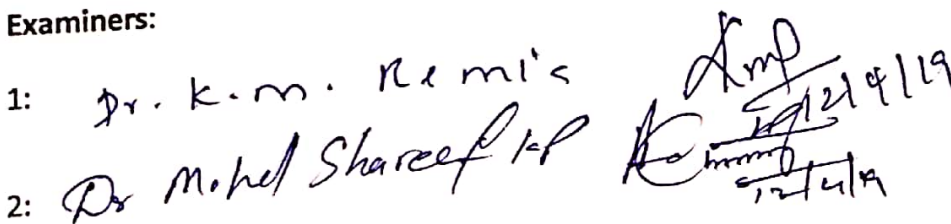 Examiners:
1: Dr. K. m. Remis 12/4/19
2: Dr Mohd Shareef KP 12/4/19